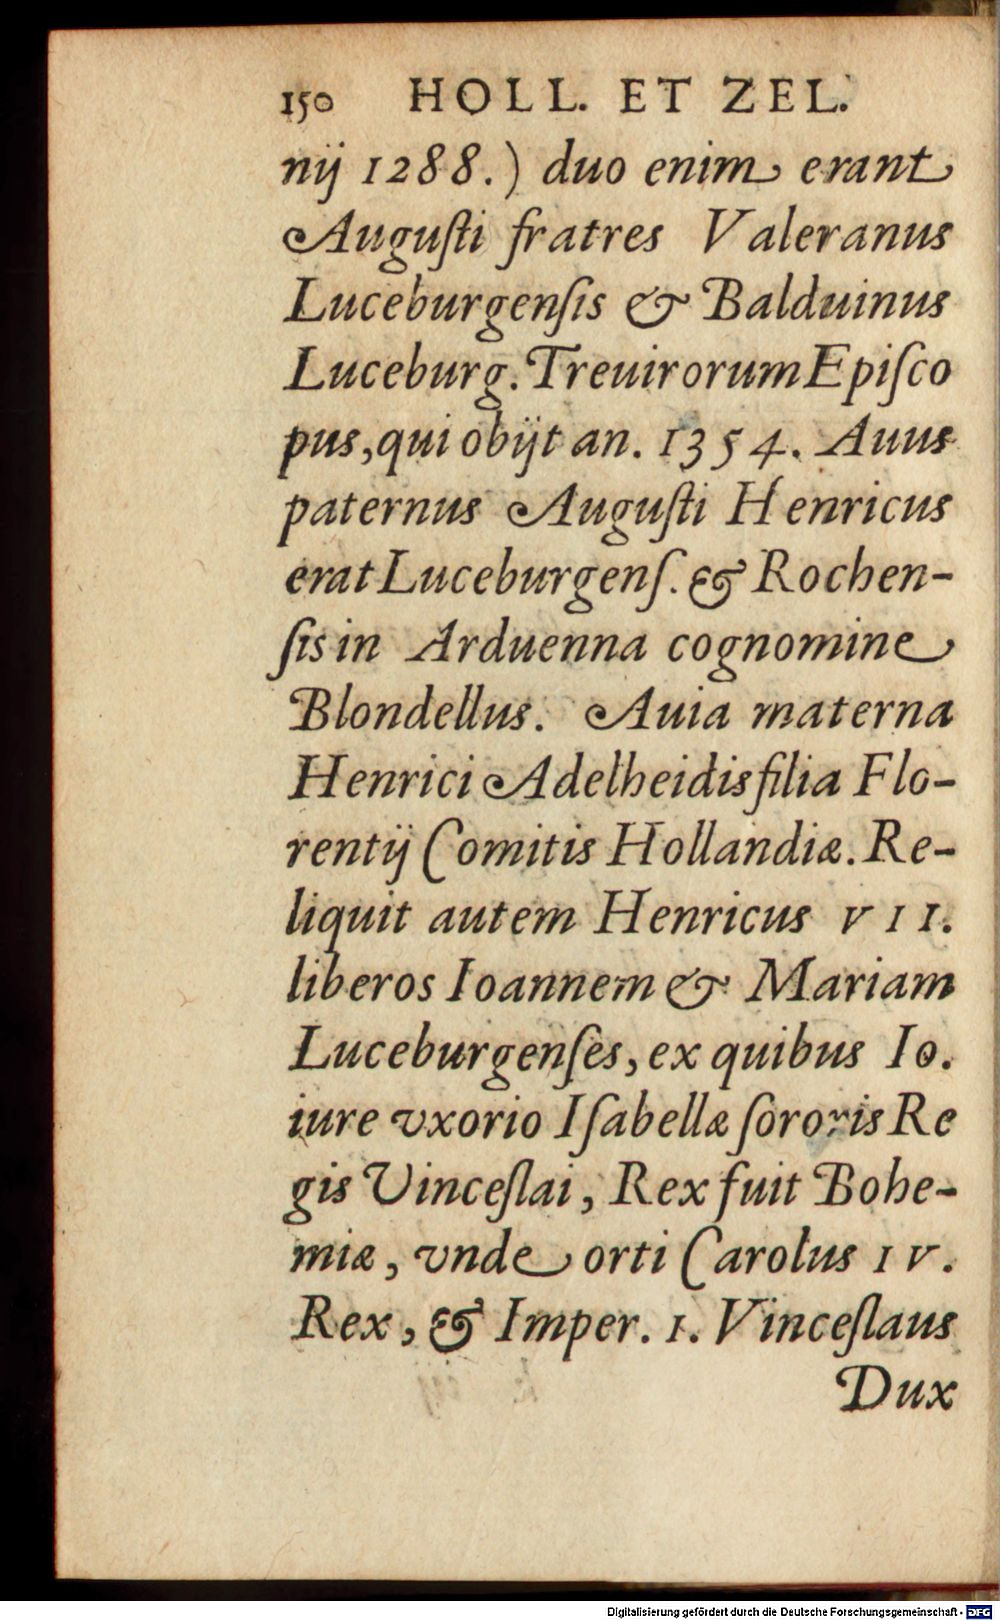 150 HOLL. ET ZEL.
nij 1288.) duo enim erant
Auguſti fratres Valeranus
Luceburgenſis & Balduinus
Luceburg. Treuirorum Epiſco
pus, qui obijt an. 1354. Auus
paternus Auguſti Henricus
erat Luceburgenſ. & Rochen-
ſis in Arduenna cognomine
Blondellus. Auia materna
Henrici Adelheidis filia Flo-
rentij Comitis Hollandiæ. Re-
liquit autem Henricus VII.
liberos Ioannem & Mariam
Luceburgenſes, ex quibus Io.
iure vxorio Iſabellæ ſororis Re
gis Vinceſlai, Rex fuit Bohe-
miæ, vnde orti Carolus IV.
Rex, & Imper. 1. Vinceſlaus
Dux
Digitalisierung gefördert durch die Deutsche Forschungsgemeinschaft - DFG